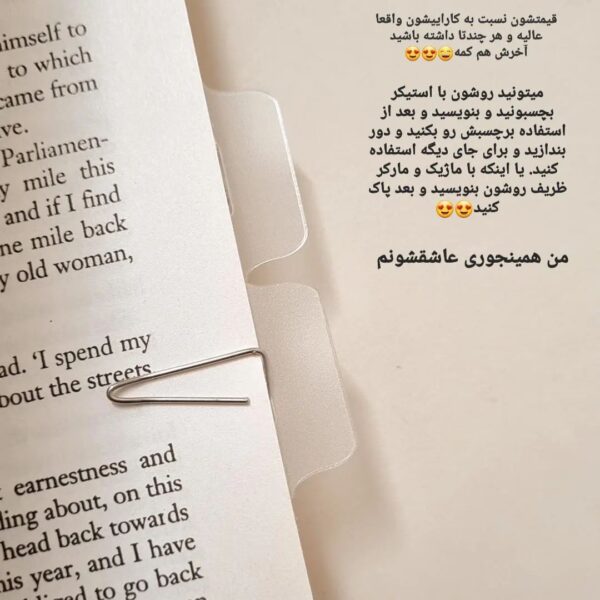 قیمتشون نسبت به کاراییشون واقعا
عالیه و هر چندتا داشته باشید
آخرش هم کمه😅😍😍
میتونید روشون با استیکر
بچسبونید و بنویسید و بعد از
استفاده برچسبش رو بکنید و دور
بندازید و برای جای دیگه استفاده
کنید. یا اینکه با ماژیک و مارکر
ظریف روشون بنویسید و بعد پاک
کنید😍😍
من همینجوری عاشقشونم
imself to
to which
came from
ve.
Parliamen-
y mile this
and if I find
ne mile back
y old woman,
ad. ‘I spend my
bout the streets
earnestness and
ling about, on this
head back towards
his year, and I have
to go back